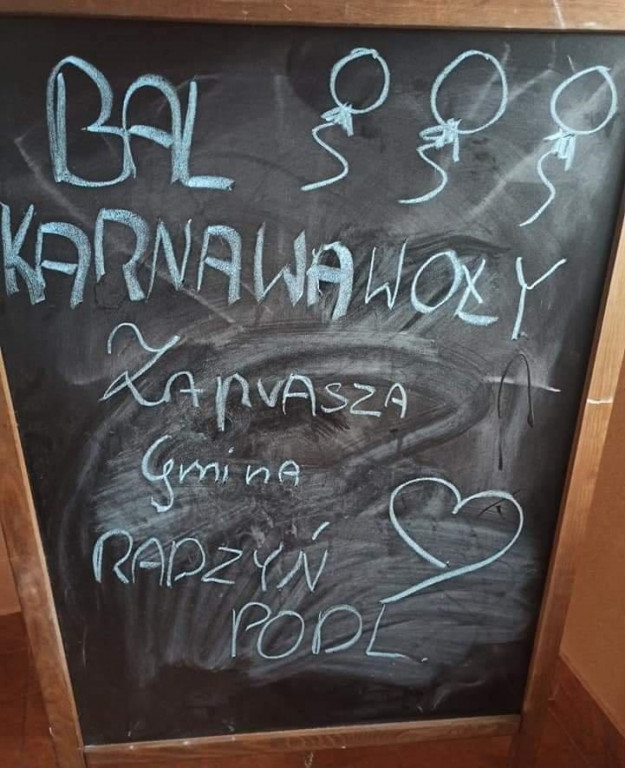 BAL
KARNAWAWOŁY
ZAPrASZA
Gmina
RADZYŃ
PODL.